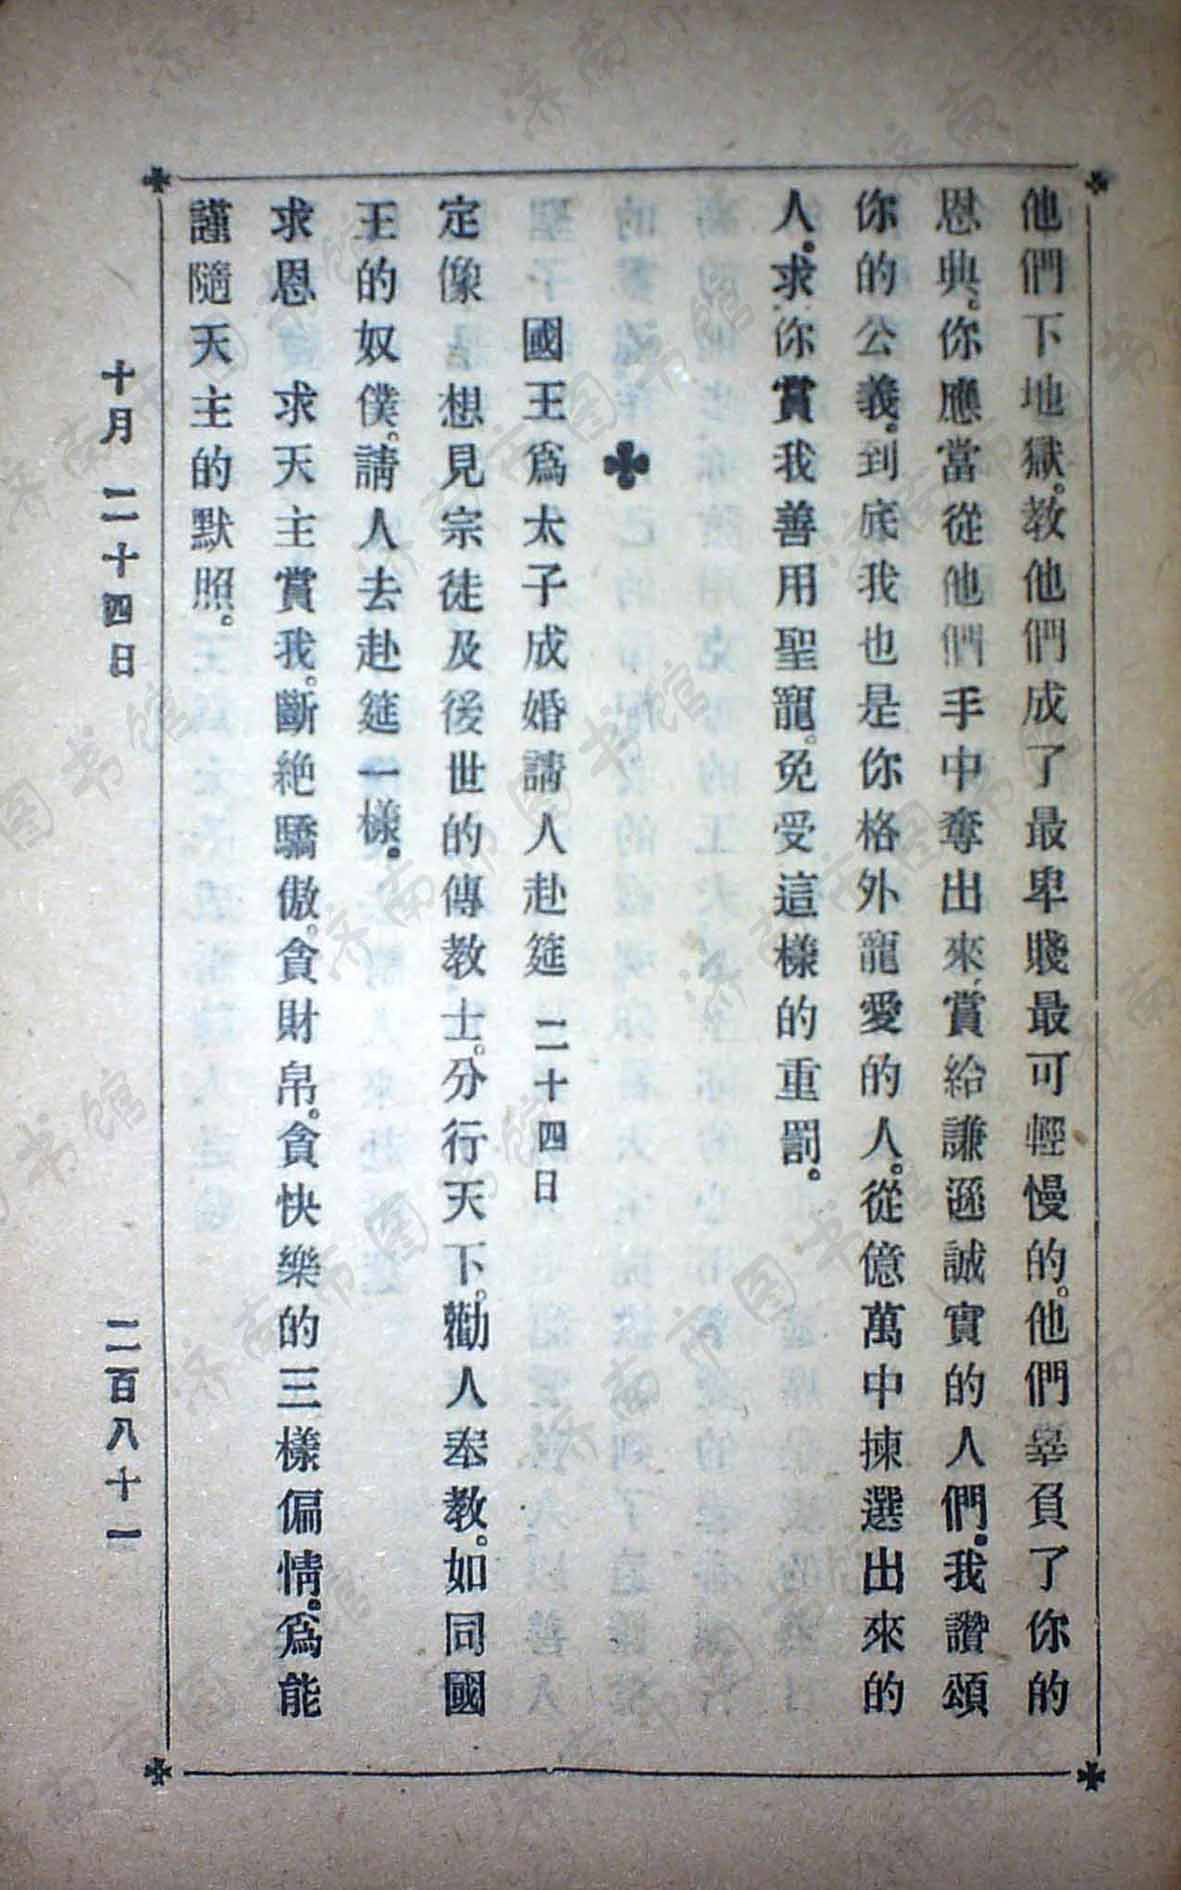 他們下地獄。教他們成了最卑賤最可輕慢的。他們辜負了你的
恩典。你應當從他們手中奪出來、賞給謙遜誠實的人們。我讚頌
你的公義。到底我也是你格外寵愛的人。從億萬中揀選出來的
人。求你賞我善用聖寵。免受這樣的重罰。
國王爲太子成婚請人赴筵 二十四日
定像 想見宗徒及後世的傳教士。分行天下。勸人奉教。如同國
王的奴僕。請人去赴筵一樣。
求恩 求天主賞我。斷絶驕傲。貪財帛。貪快樂的三樣偏情。爲能
謹隨天主的默照。
十月 二十四日 二百八十一
济南市图书馆